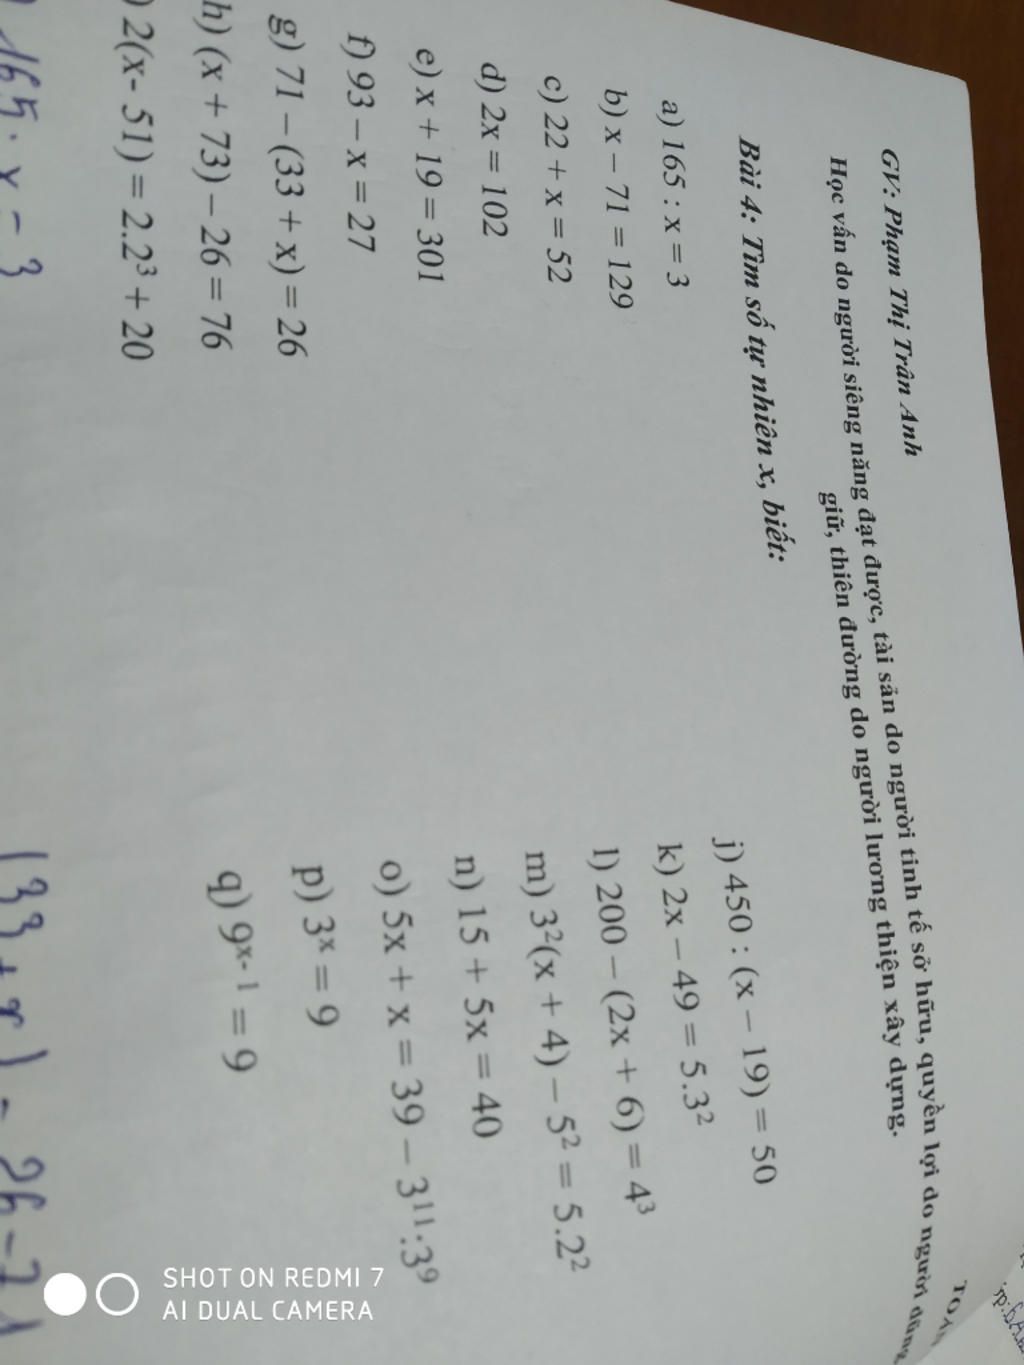 GV: Phạm Thị Trân Anh
Học vấn do người siêng năng đạt được, tài sản do người tinh tế sở hữu, quyền lợi do người dũng
giữ, thiên đường do người lương thiện xây dựng.
Bài 4: Tìm số tự nhiên x, biết:
a) 165 : x = 3
b) x – 71 = 129
c) 22 + x = 52
d) 2x = 102
e) x + 19 = 301
f) 93 – x = 27
g) 71 – (33 + x) = 26
h) (x + 73) – 26 = 76
) 2(x- 51) = 2.2³ + 20
j) 450 : (x – 19) = 50
k) 2x – 49 = 5.3²
l) 200 – (2x + 6) = 4³
m) 3²(x + 4) – 5² = 5.2²
n) 15 + 5x = 40
o) 5x + x = 39 – 3¹¹:3⁹
p) 3ˣ = 9
q) 9ˣ⁻¹ = 9
165 : x = 3
SHOT ON REDMI 7
AI DUAL CAMERA